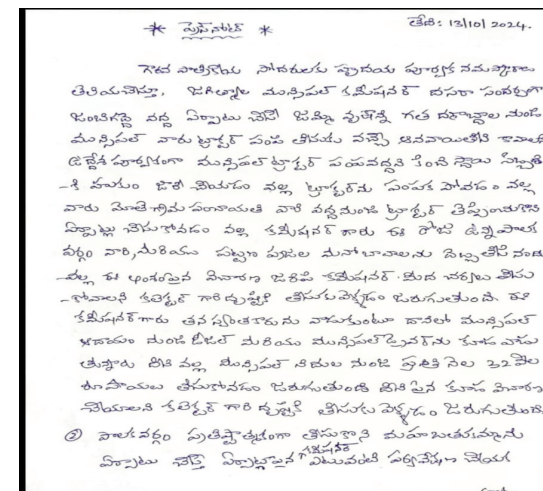 * ప్రెస్ నోట్ * తేది: 13/10/2024.
గౌరవ పాత్రికేయ సోదరులకు హృదయ పూర్వక నమస్కారాలు
తెలియచేస్తూ, జగిత్యాల మున్సిపల్ కమీషనర్ దసరా సందర్భంగా
జంబిగద్దె వద్ద ఏర్పాటు చేసే జమ్మి వృక్షాన్ని గత దశాబ్దాల నుండి
మున్సిపల్ వారు ట్రాక్టర్ పంపి తీసుకు వచ్చే ఆనవాయితీని కావాలని
ఉద్దేశ పూర్వకంగా మున్సిపల్ ట్రాక్టర్ పంపవద్దని కింది స్థాయి సిబ్బంది
-కి హుకుం జారీ చేయడం వల్ల ట్రాక్టర్‌ను పంపక పోవడం వల్ల
వారు మోతె గ్రామ పంచాయతి వారి వద్దనుండి ట్రాక్టర్ తెప్పించుకొని
ఏర్పాట్లు చేసుకోవడం వల్ల కమీషనర్ గారు ఈ రోజు ఉన్న పాలక
వర్గం వారి, మరియు పట్టణ ప్రజల మనోభావాలను దెబ్బ తీసి నందు
-వల్ల ఈ అంశంపైన విచారణ జరిపి కమీషనర్ మీద చర్యలు తీసు
-కోవాలని కలెక్టర్ గారి దృష్టికి తీసుకు వెళ్ళడం జరుగుతుంది. ఈ
కమీషనర్ గారు తన స్వంత కారును వాడుకుంటూ దానిలో మున్సిపల్
ఆదాయం నుండి డీజల్ మరియు మున్సిపల్ డ్రైవర్‌ను కూడా వాడు
తున్నారు దీని వల్ల మున్సిపల్ నిధుల నుండి ప్రతి నెల 33 వేల
రూపాయలు తీసుకోవడం జరుగుతుంది దీని పైన కూడా విచారణ
చేయాలని కలెక్టర్ గారి దృష్టికి తీసుకు వెళ్ళడం జరుగుతుంది
② పాలకవర్గం ప్రతిష్ఠాత్మకంగా తీసుకొని మహా బతుకమ్మను
ఏర్పాటు చేస్తే ఏర్పాట్లపైన కమీషనర్ ఎటువంటి పర్యవేక్షణ చేయక